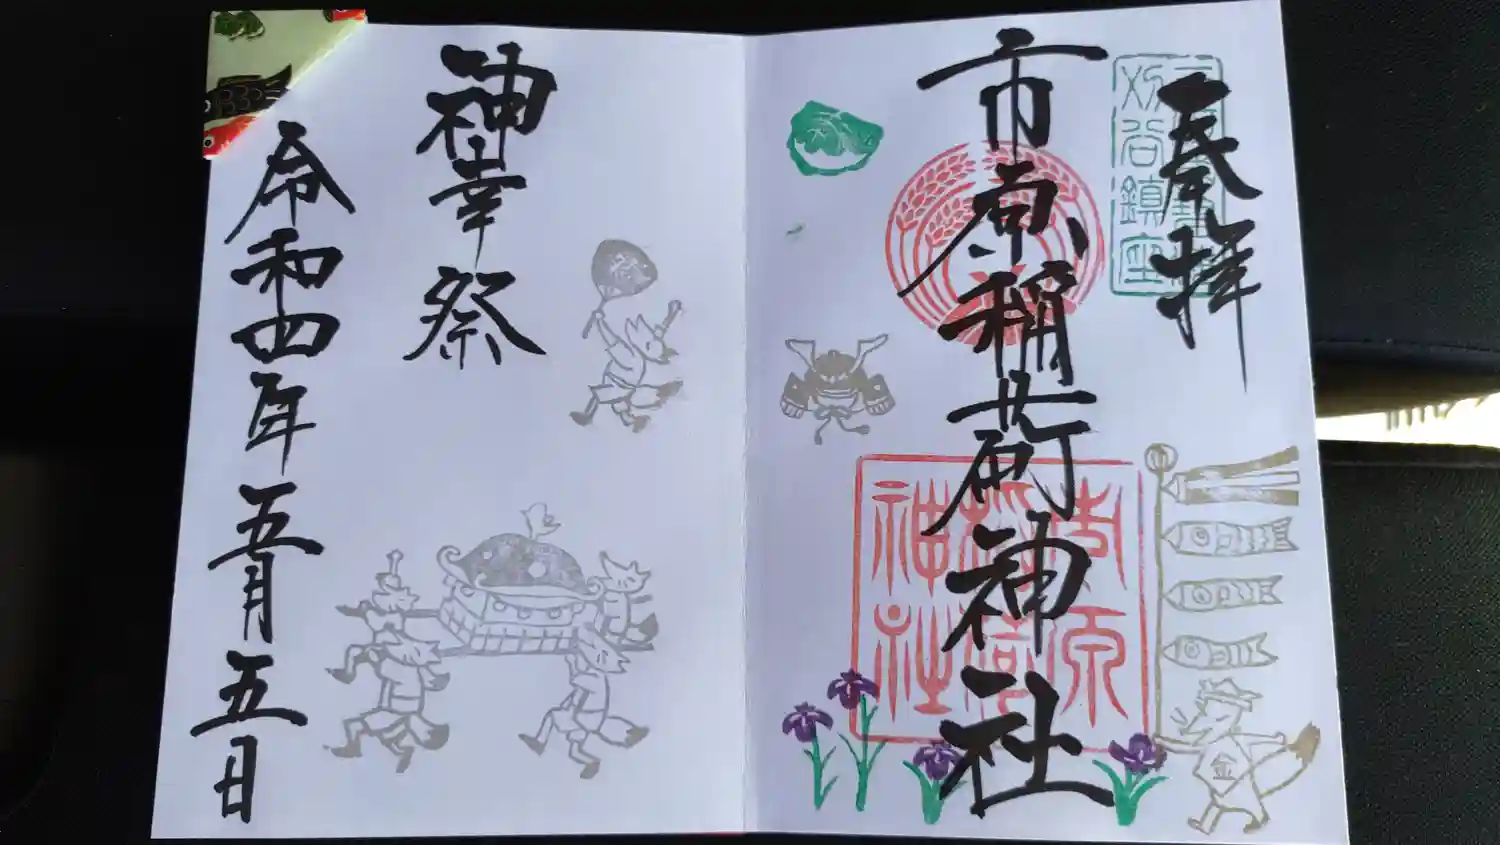 奉拝
市原稲荷神社
市原
稲荷
神社
金
神幸祭
令和四年五月五日